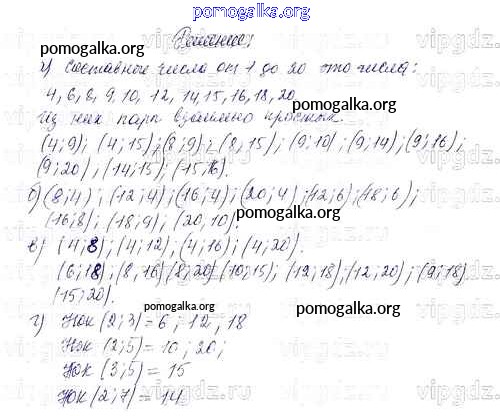 pomogalka.org
Решение:
pomogalka.org pomogalka.org
а) Составные числа от 1 до 20 это числа:
4, 6, 8, 9, 10, 12, 14, 15, 16, 18, 20
Из них пары взаимно простых.
pomogalka.org pomogalka.org
(4;9); (4;15); (8;9); (8;15); (9;10); (9;14); (9;16);
(9;20); (14;15); (15;16).
б) (8;4); (12;4); (16;4); (20;4); (12;6); (18;6);
(16;8); (18;9); (20;10).
pomogalka.org pomogalka.org
в) (4;8); (4;12); (4;16); (4;20).
(6;18); (8,16) (8;20) (10;15); (12;18); (12;20); (9;18)
(15;20).
pomogalka.org
pomogalka.org
г) НОК (2;3) = 6; 12, 18
НОК (2;5) = 10; 20;
НОК (3;5) = 15
pomogalka.org
НОК (2;7) = 14
vipgdz.ru